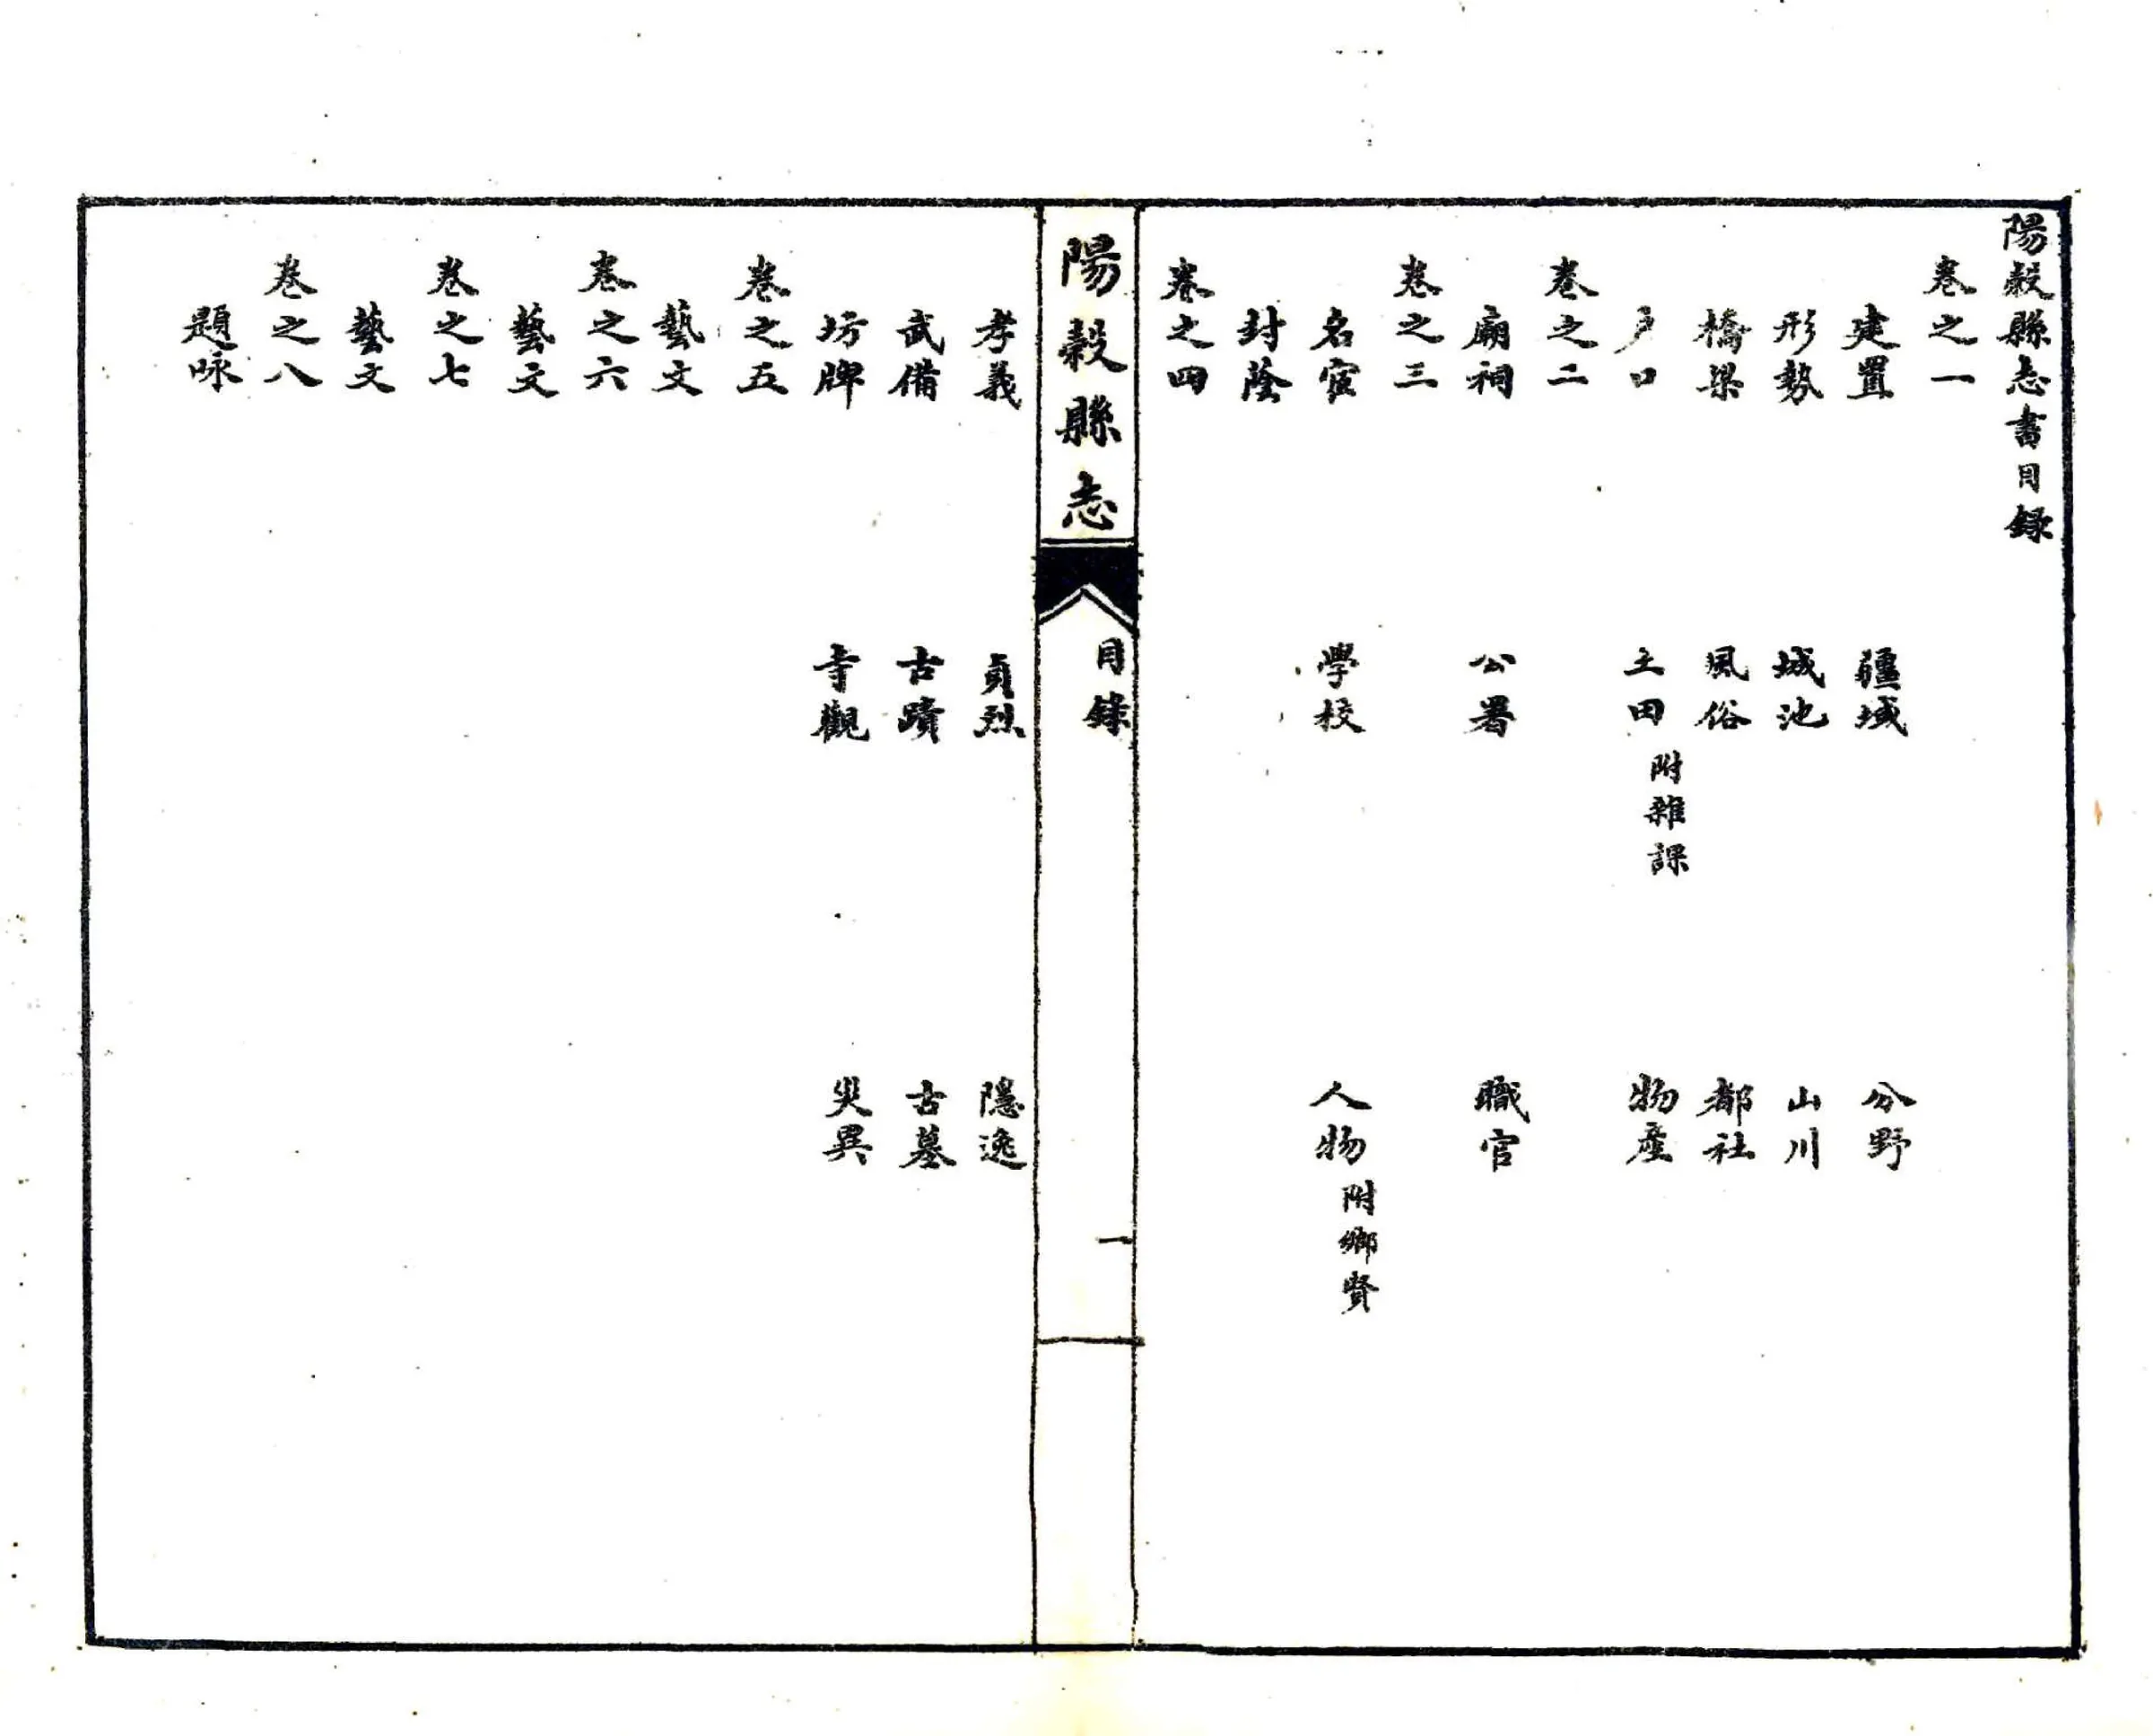 陽穀縣志書目錄
卷之一
建置 疆域 分野
形勢 城池 山川
橋梁 風俗 都社
戶口 土田 附雜課 物產
卷之二
廟祠 公署 職官
卷之三
名宦 學校 人物 附鄉賢
封蔭
卷之四
陽穀縣志 目錄 一
孝義 貞烈 隱逸
武備 古蹟 古墓
坊牌 寺觀 災異
卷之五
藝文
卷之六
藝文
卷之七
藝文
卷之八
題咏